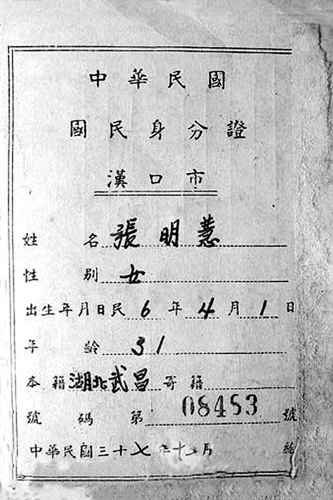 中華民國
國民身分證
漢口市
姓名 張明蕙
性別 女
出生年月日民 6 年 4 月 1 日
年齡 31
本籍 湖北武昌 寄籍
號碼第 08453 號
中華民國三十七年十二月